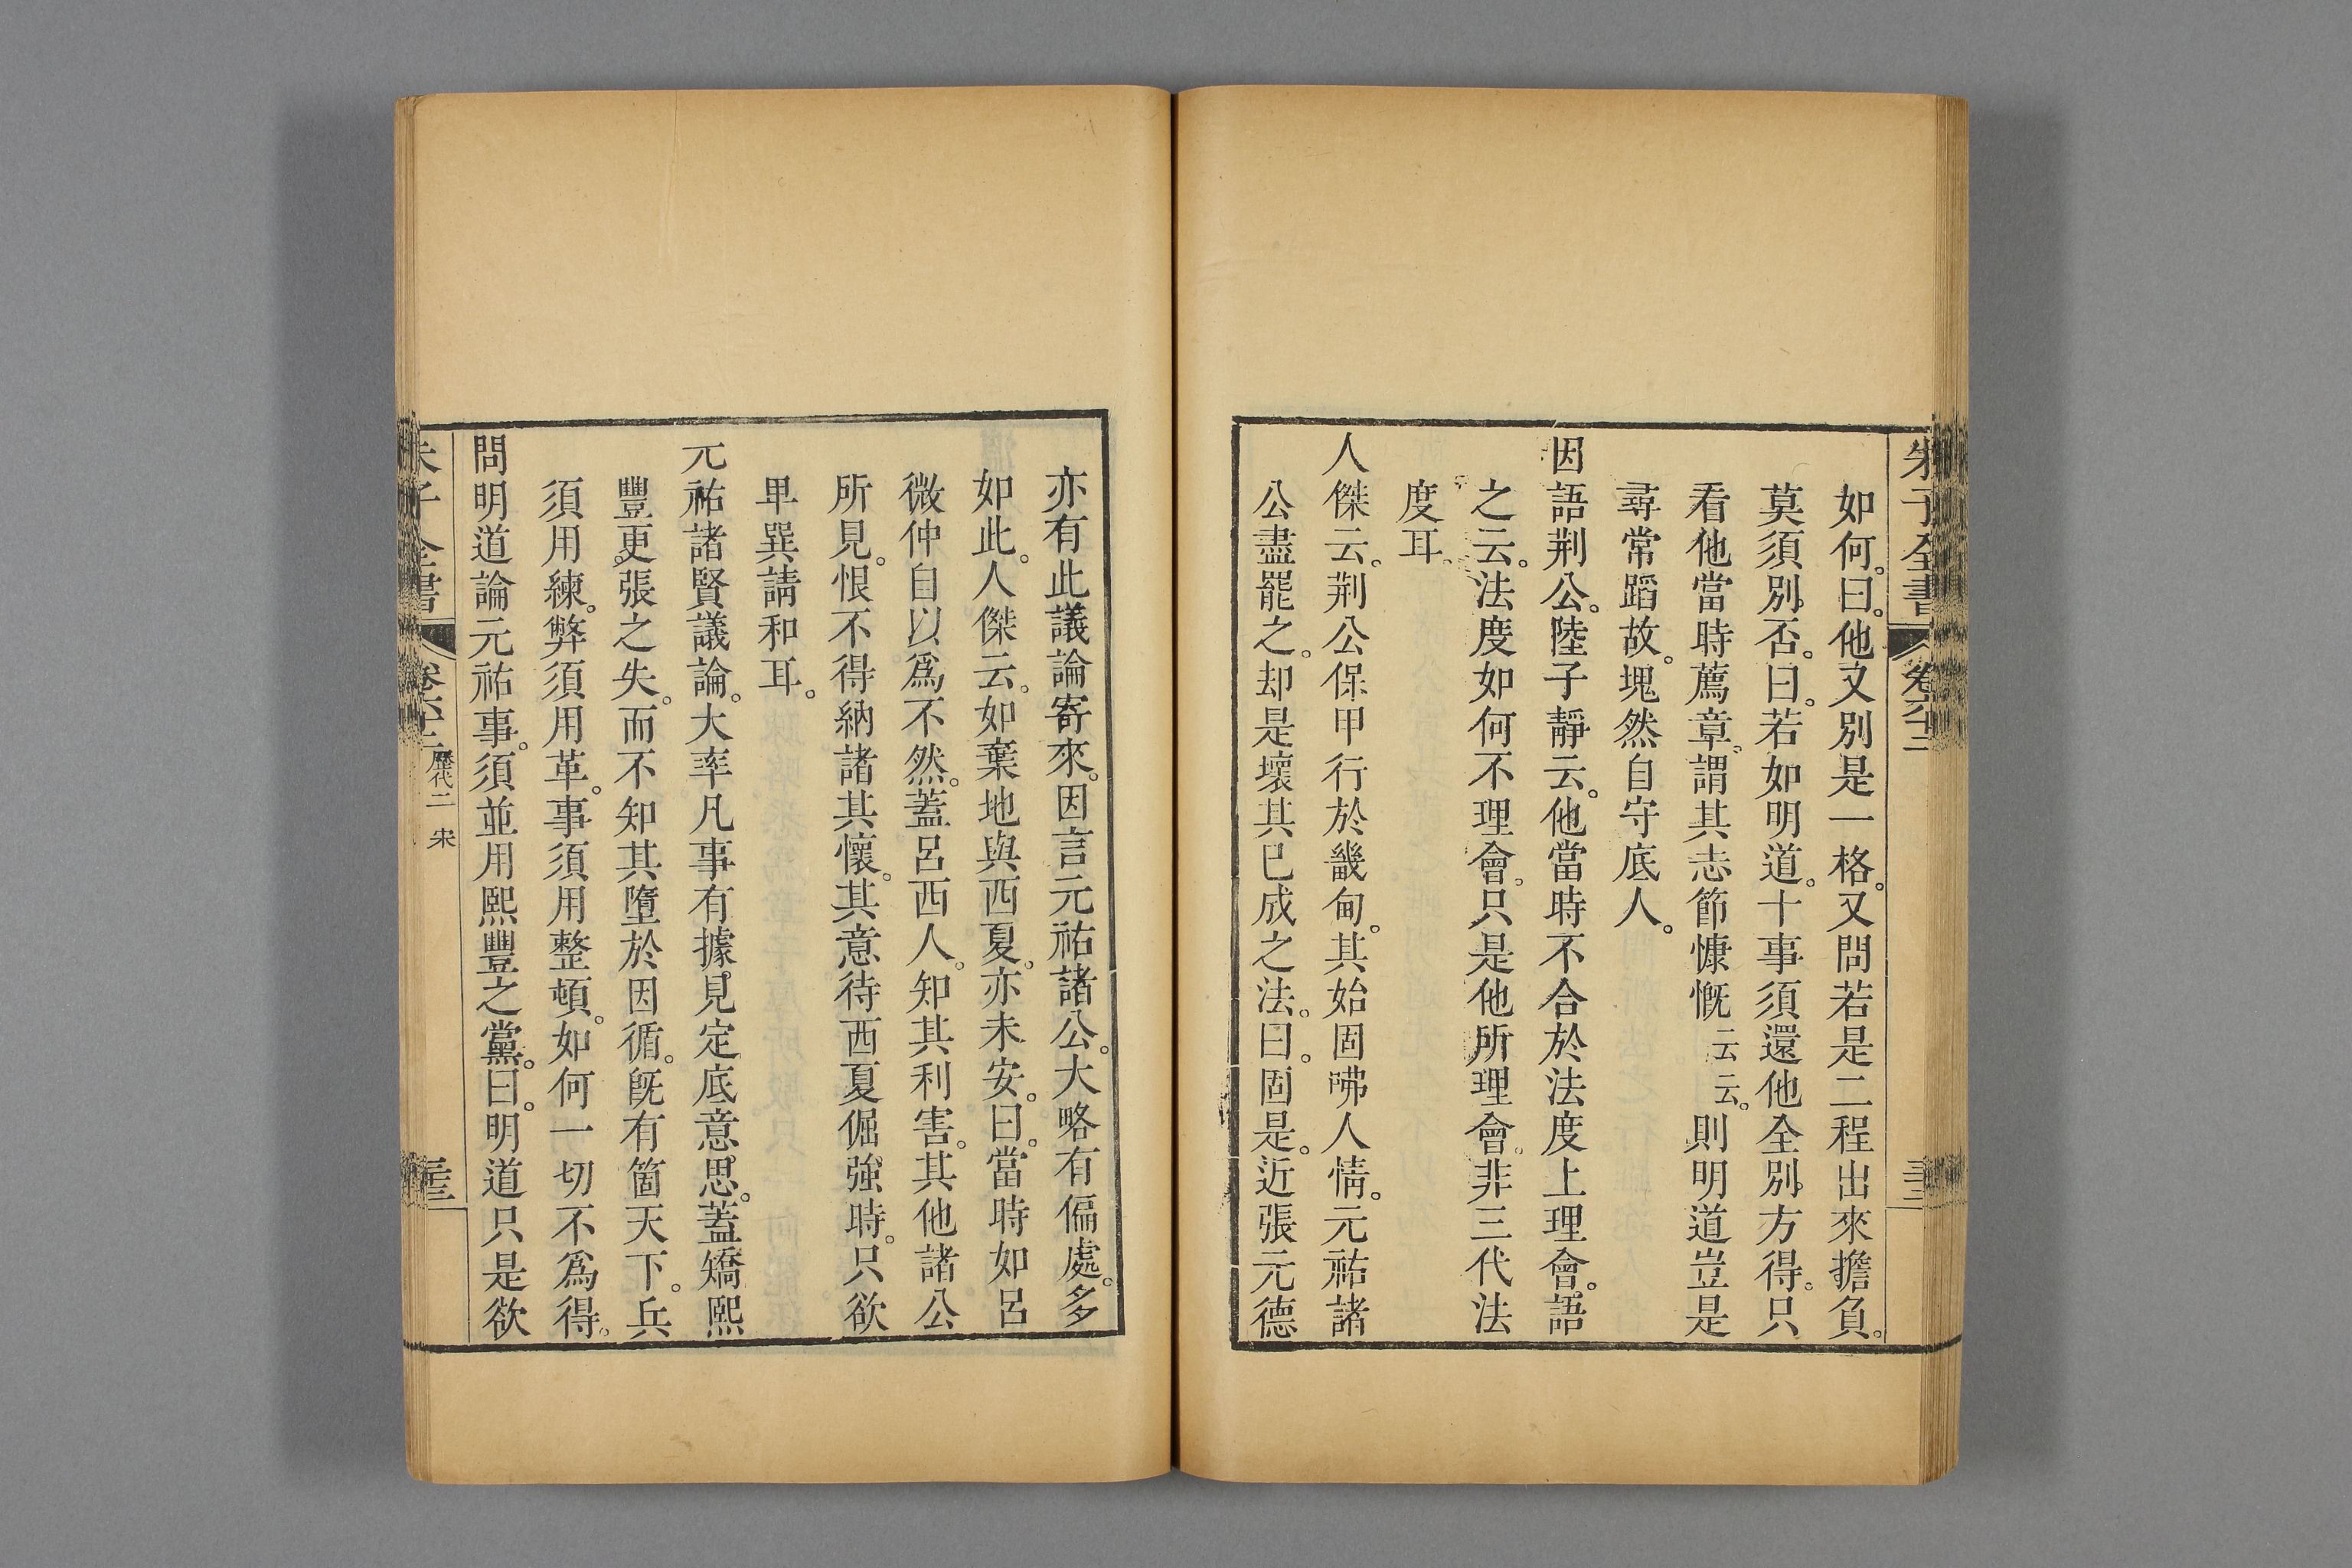 朱子全書 卷六十二
如何。曰。他又別是一格。又問若是二程出來擔負。
莫須別否。曰。若如明道。十事須還他全別。方得。只
看他當時薦章。謂其志節慷慨云云。則明道豈是
尋常蹈故。塊然自守底人。
因語荆公。陸子靜云。他當時不合於法度上理會。語
之云。法度如何不理會。只是他所理會。非三代法
度耳。
人傑云。荆公保甲行於畿甸。其始固咈人情。元祐諸
公盡罷之。却是壞其已成之法。曰。固是。近張元德
亦有此議論寄來。因言元祐諸公。大略有偏處。多
如此。人傑云。如棄地與西夏。亦未安。曰。當時如呂
微仲自以爲不然。蓋呂西人。知其利害。其他諸公
所見。恨不得納諸其懷。其意待西夏倔強時。只欲
卑巽請和耳。
元祐諸賢議論。大率凡事有據。見定底意思。蓋矯熙
豐更。張之失。而不知其墮於因循。旣有箇天下。兵
須用練。弊須用革。事須用整頓。如何一切不爲得。
問明道論元祐事。須並用熙豐之黨。曰。明道只是欲
朱子全書 卷六十二 歷代二 宋